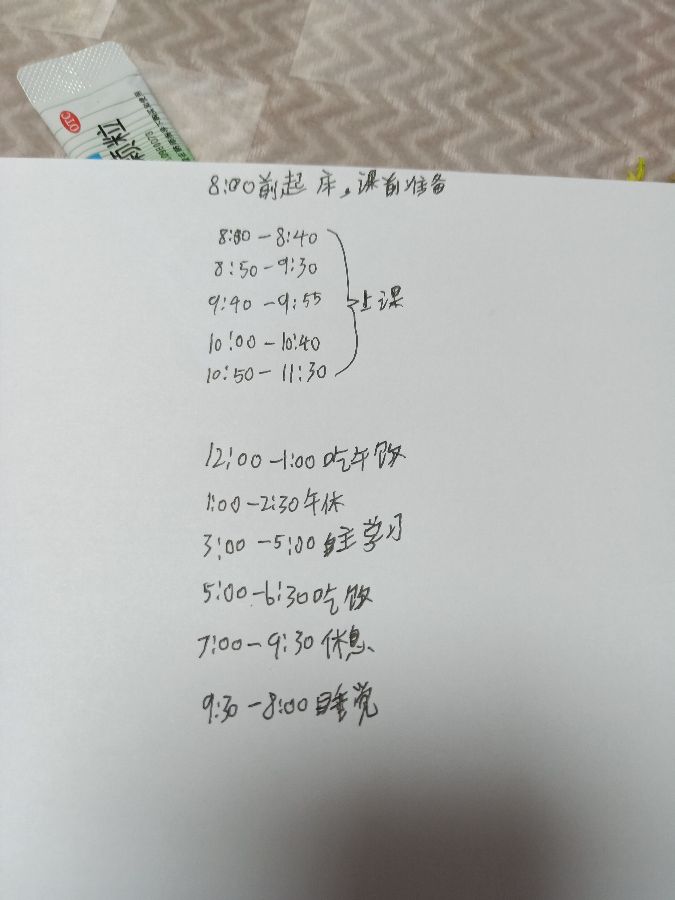 OTC
颗粒
8:00前起床,课前准备
8:00-8:40
8:50-9:30
9:40-9:55 上课
10:00-10:40
10:50-11:30
12:00-1:00吃午饭
1:00-2:30午休
3:00-5:00自主学习
5:00-6:30吃饭
7:00-9:30休息
9:30-8:00睡觉